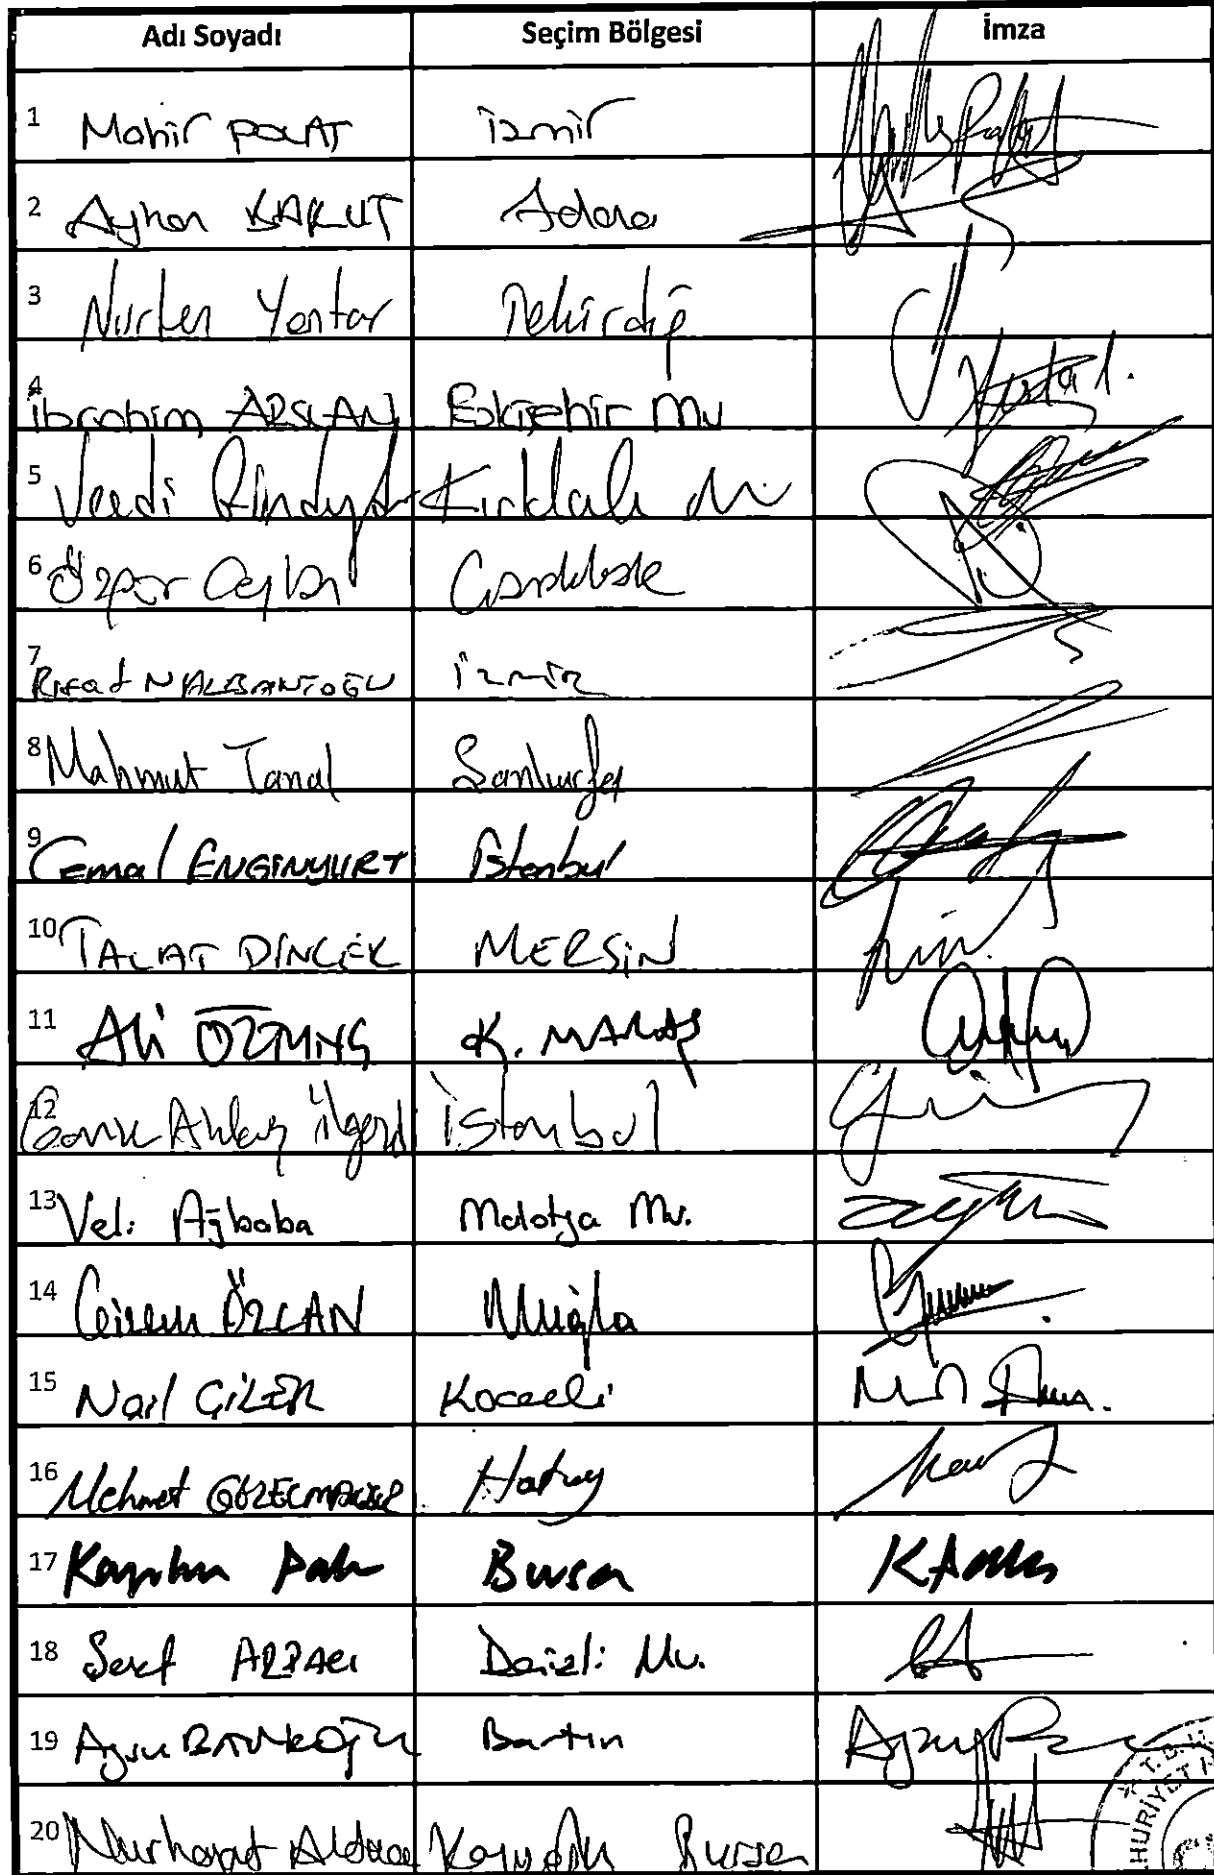 Adı Soyadı Seçim Bölgesi İmza
1 Mahir POLAT İzmir
2 Ayhan BARUT Adana
3 Nurten Yontar Tekirdağ
4 İbrahim ARSLAN Eskişehir Mv
5 Vecdi Gündoğdu Kırklareli Mv.
6 Özgür Ceylan Çanakkale
7 Rıfat NALBANTOĞLU İzmir
8 Mahmut Tanal Şanlıurfa
9 Cemal ENGİNYURT İstanbul
10 TALAT DİNÇER MERSİN
11 Ali ÖZTUNÇ K. MARAŞ
12 Gamze Akkuş İlgezdi İstanbul
13 Veli Ağbaba Malatya Mv.
14 Gizem ÖZCAN Muğla
15 Nail ÇİLER Kocaeli
16 Mehmet GÜZELMANSUR Hatay
17 Kayıhan Pala Bursa
18 Şeref ARPACI Denizli Mv.
19 Aysu BANKOĞLU Bartın
20 Nurhayat Altaca Kayışoğlu Bursa